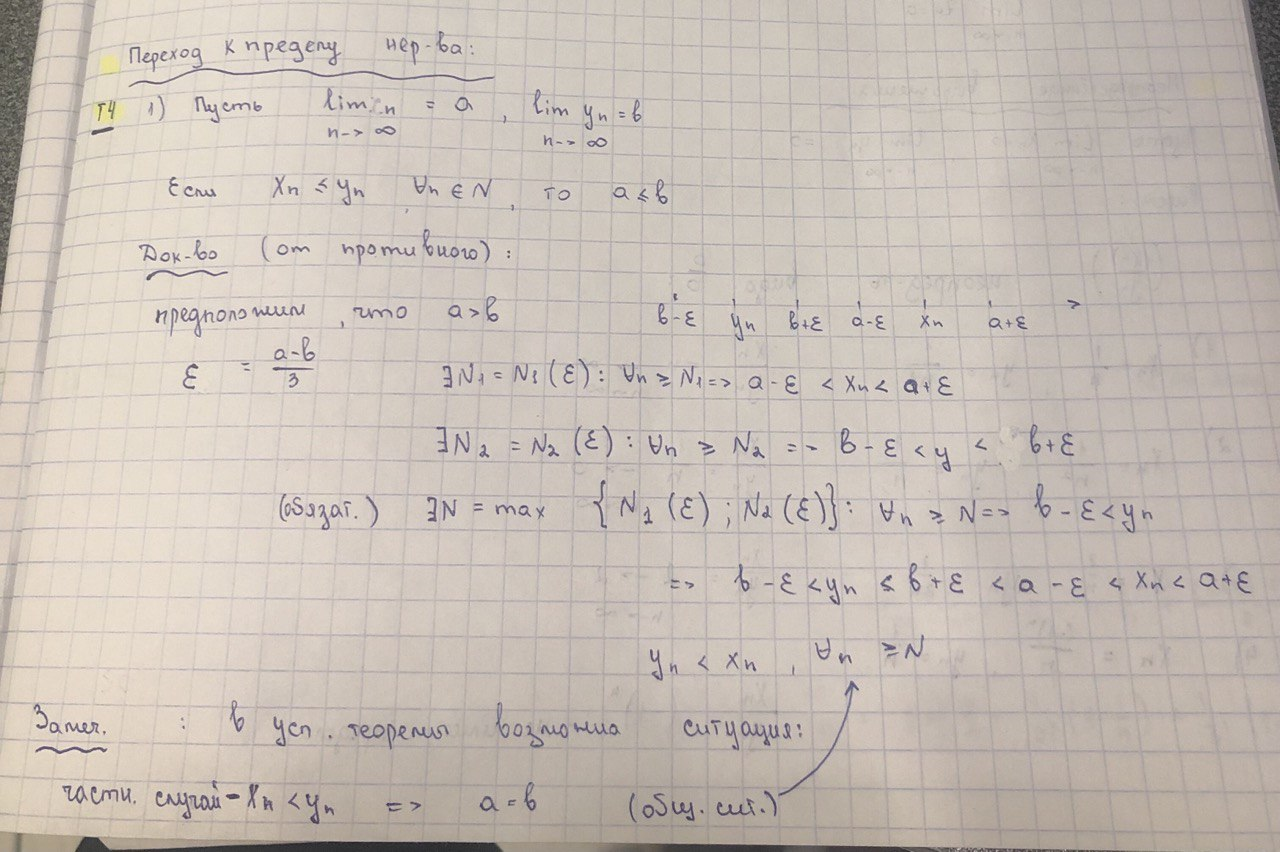 Переход к пределу нер-ва:
Т4 1) Пусть lim n = a , lim yn = b
n -> ∞ n -> ∞
Если Xn ≤ yn , ∀n ∈ N , то a ≤ b
Док-во (от противного) :
предположим , что a > b b-ε yn b+ε a-ε xn a+ε >
ε = a-b / 3 ∃N1 = N1 (ε) : ∀n ≥ N1 => a - ε < xn < a + ε
∃N2 = N2 (ε) : ∀n ≥ N2 =- b - ε < y < b+ε
(обязат.) ∃N = max { N1 (ε) ; N2 (ε)} : ∀n ≥ N => b - ε < yn
=> b - ε < yn ≤ b + ε < a - ε < xn < a + ε
yn < xn , ∀n ≥ N
Замеч. : в усл . теоремы возможна ситуация:
части. случай - Xn < yn => a = b (общ. сит.)